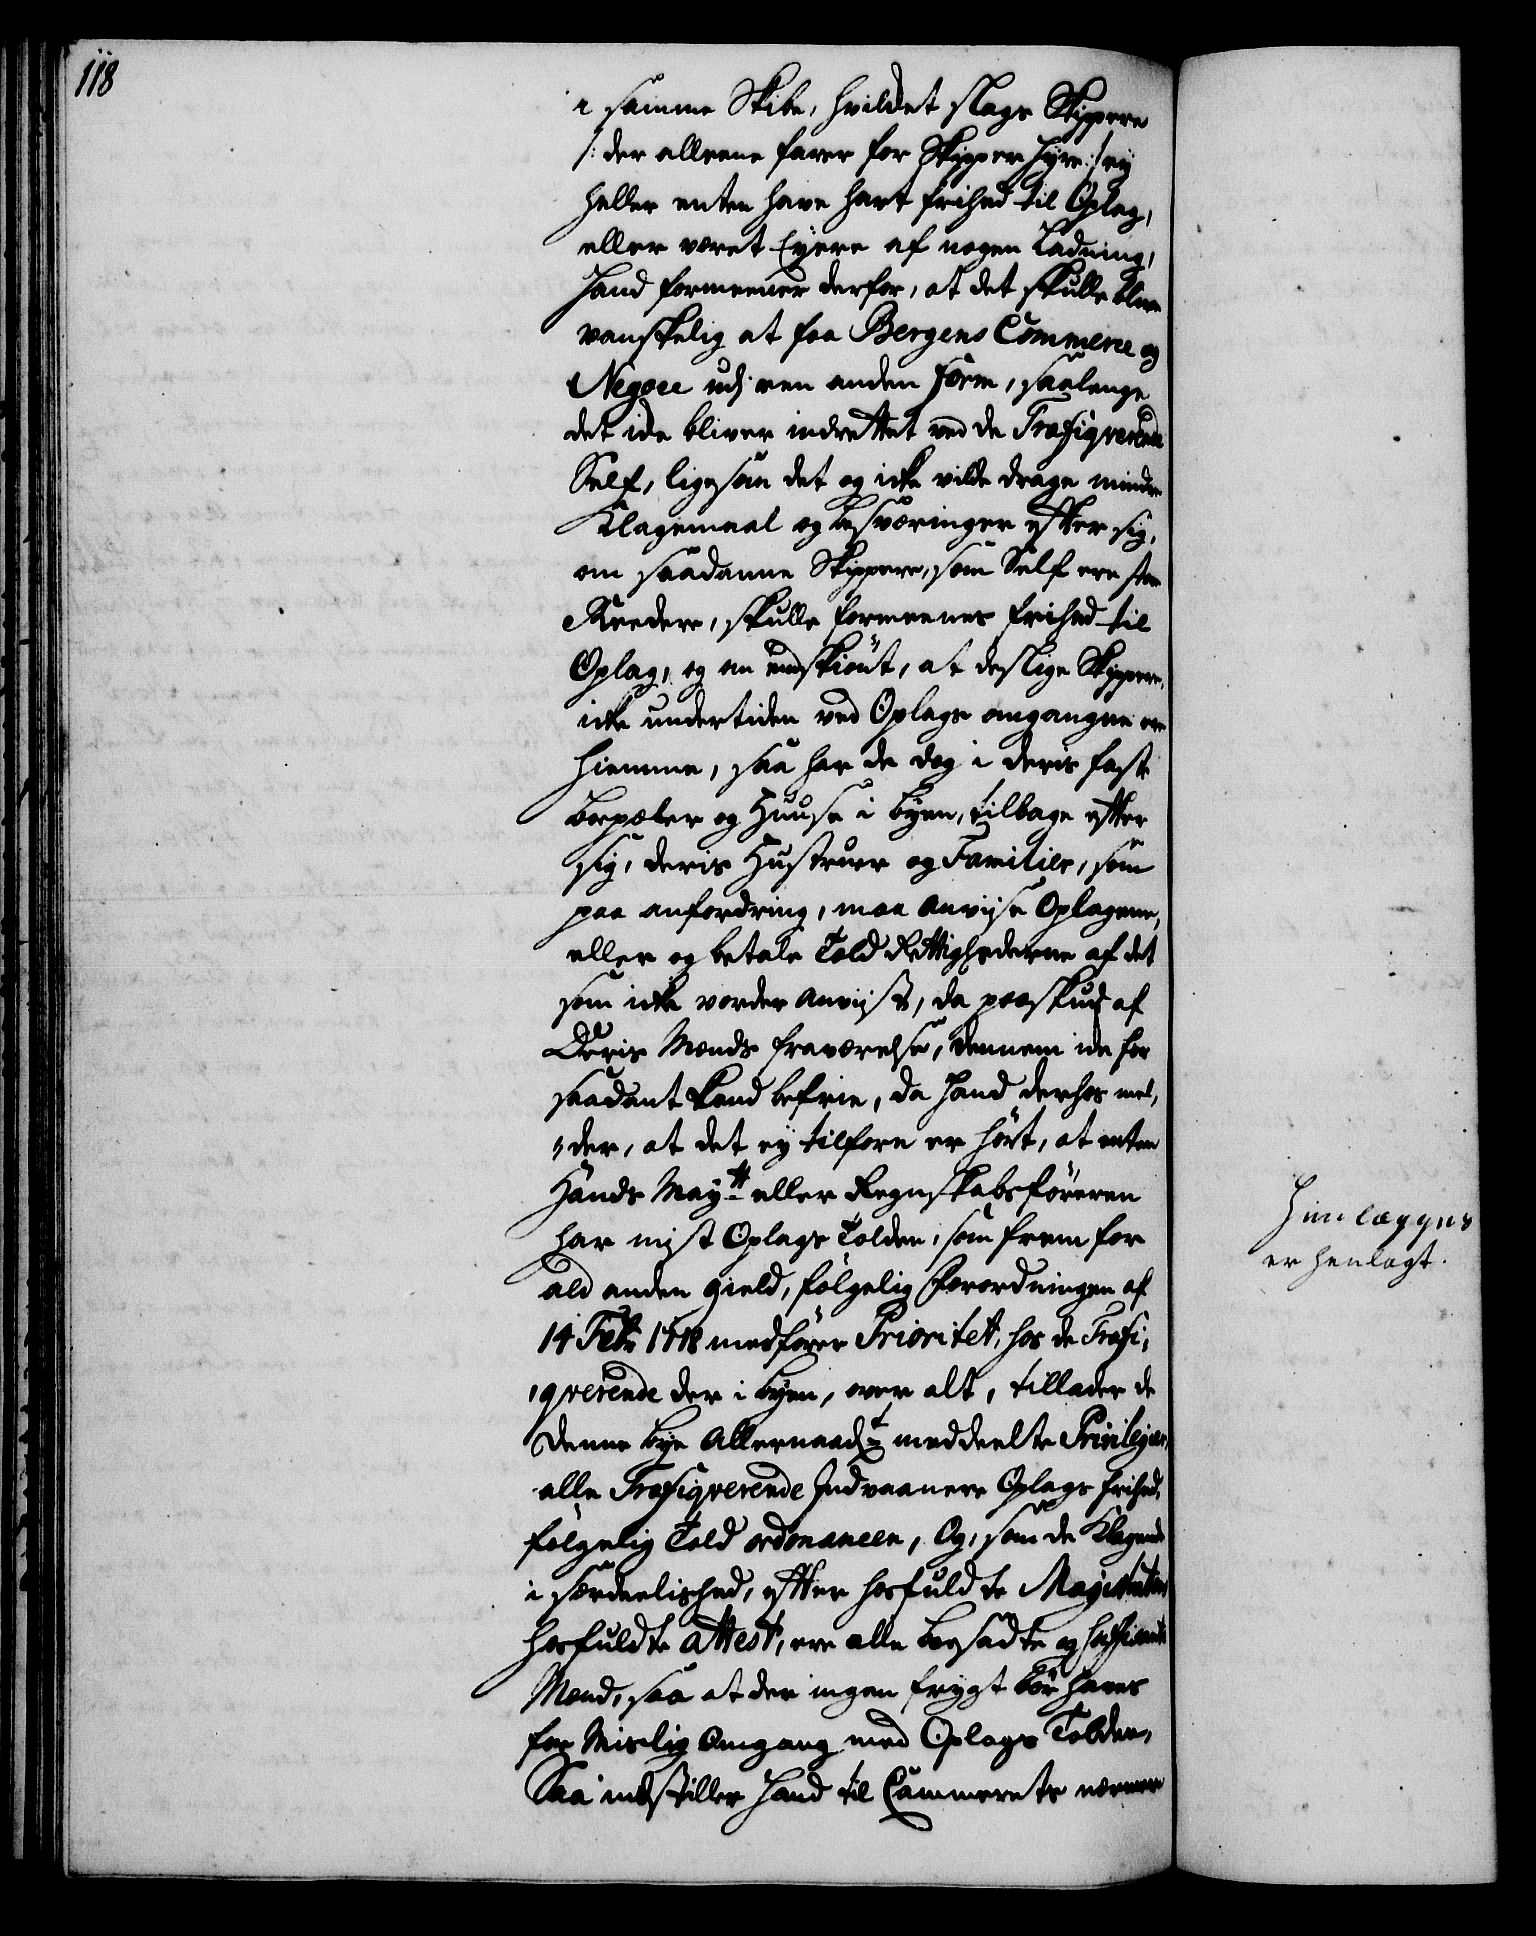 118
i samme Skibe, hvilket slags Skippere
/: der alleene farer for Skipper Hyre :/ ey
heller enten have havt frihed til Oplag,
eller været Eyere af nogen Ladning,
Hand formeener derfor, at det skulle blive
vanskelig at faa Bergens Commerce og
Negoce udi een anden Form, saalenge
det icke bliver indrettet ved de Trafiqverende
Self, ligesom det og icke vilde drage mindre
Klagemaal og besværinger efter sig,
om saadanne Skippere, som Self ere
Reedere, skulle formeenes frihed til
Oplag, og om endskiönt, at deslige Skippere,
icke undertiden ved Oplags omgangene ere
hiemme, saa har de dog i deris faste
boepæler og Huuse i byen, tilbage efter
sig, deris Hustruer og Familier, som
paa anfordring, maa anviise Oplagene,
eller og betale Told Rettighederne af det
som icke vorder anviist, da paaskud af
Deris Mænds fraværelse, dennem icke for
saadant kand befrie, da Hand derhos mel,
,der, at det ey tilforn er hört, at enten
Hands Maytt eller Regnskabsföreren
har mist Oplags Tolden, som frem for
ald anden gield, fölgelig Forordningen af
14 Febr 1718 medförer Prioritet, hos de Trafi,
,qverende der i byen, over alt, tillader de
denne bye Allernaadt meddeelte Privilegier,
alle Trafiqverende Indvaanere Oplags frihed,
fölgelig Told ordonancen, Og, som de Klagende
i særdeelished, efter hosfuldte Magistratens
hosfuldte attest, ere alle boesadte og suffisante
Mænd, saa at der ingen frygt bör haves
for Mislig Omgang med Oplags Tolden,
Saa indstiller Hand til Cammerets nærmere
Henlægges
er henlagt.